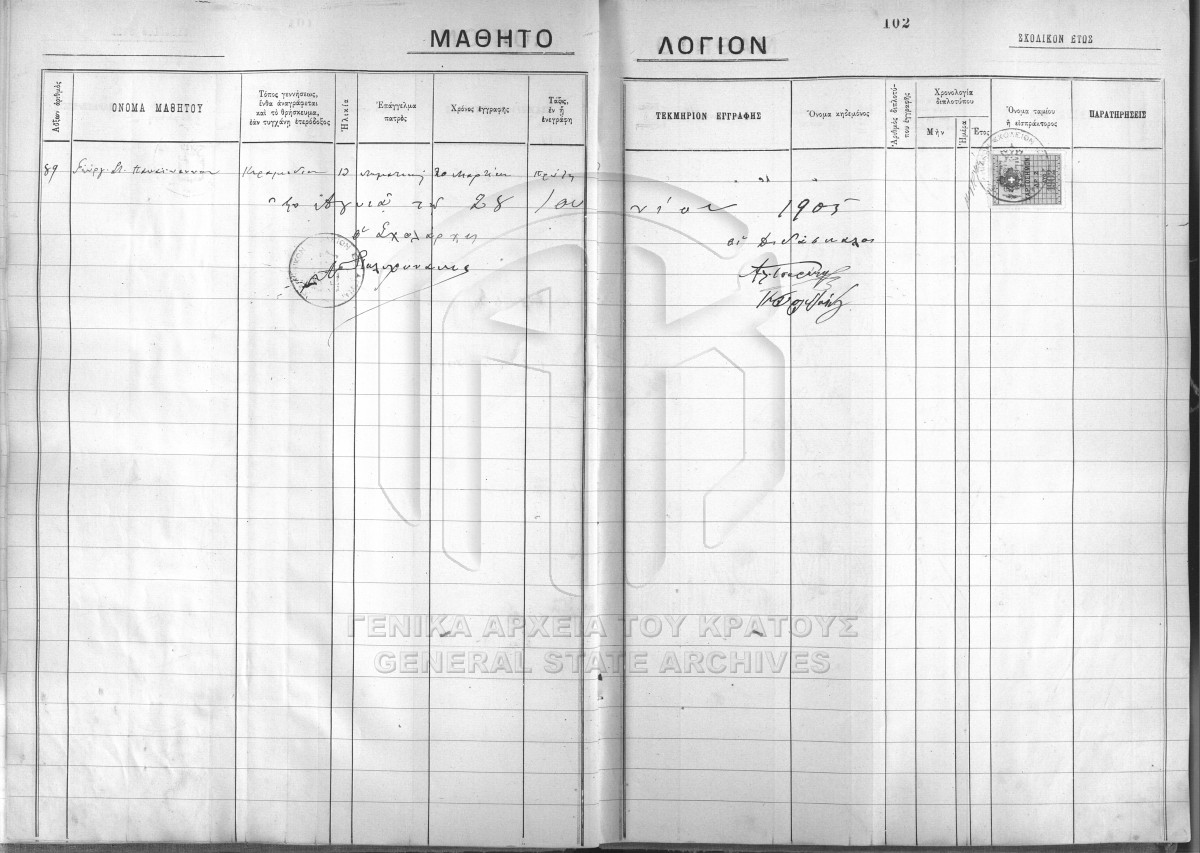 102
ΜΑΘΗΤΟ ΛΟΓΙΟΝ
ΣΧΟΛΙΚΟΝ ΕΤΟΣ
Αὔξων ἀριθμός
ΟΝΟΜΑ ΜΑΘΗΤΟΥ
Τόπος γεννήσεως,
ἔνθα ἀναγράφεται
καὶ τὸ θρήσκευμα,
ἐὰν τυγχάνῃ ἑτερόδοξος
Ἡλικία
Ἐπάγγελμα
πατρός
Χρόνος ἐγγραφῆς
Τάξις,
ἐν ᾗ
ἐνεγράφη
ΤΕΚΜΗΡΙΟΝ ΕΓΓΡΑΦΗΣ
Ὄνομα κηδεμόνος
Ἀριθμὸς διπλοτύ-
που ἐγγραφῆς
Χρονολογία
διπλοτύπου
Μὴν
Ἡμέρα
Ἔτος
Ὄνομα ταμίου
ἢ εἰσπράκτορος
ΠΑΡΑΤΗΡΗΣΕΙΣ
89 Γεώργ. 20 Μαρτίου πρώτη
Ἐν Ἁγυιᾷ τῇ 28 Ἰουνίου 1905
ὁ Σχολάρχης
οἱ Διδάσκαλοι
ΓΕΝΙΚΑ ΑΡΧΕΙΑ ΤΟΥ ΚΡΑΤΟΥΣ
GENERAL STATE ARCHIVES